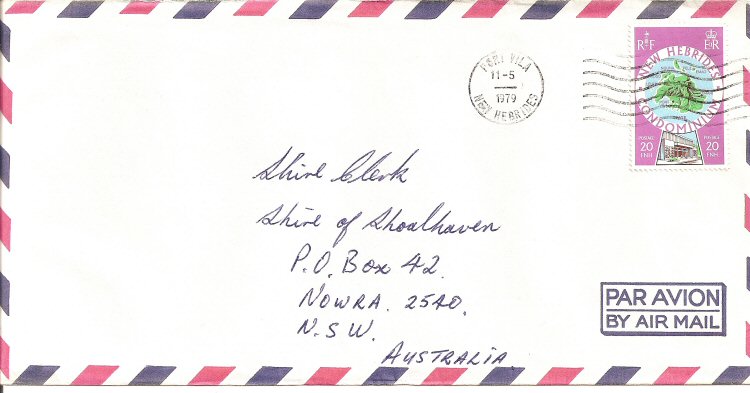 PORT VILA
11-5
1979
NEW HEBRIDES
RF
EIIR
NEW HEBRIDES
CONDOMINIUM
POSTAGE
20
FNH
POSTAGE
20
FNH
Shire Clerk
Shire of Shoalhaven
P.O. Box 42.
NOWRA. 2540.
N.S.W.
AUSTRALIA.
PAR AVION
BY AIR MAIL